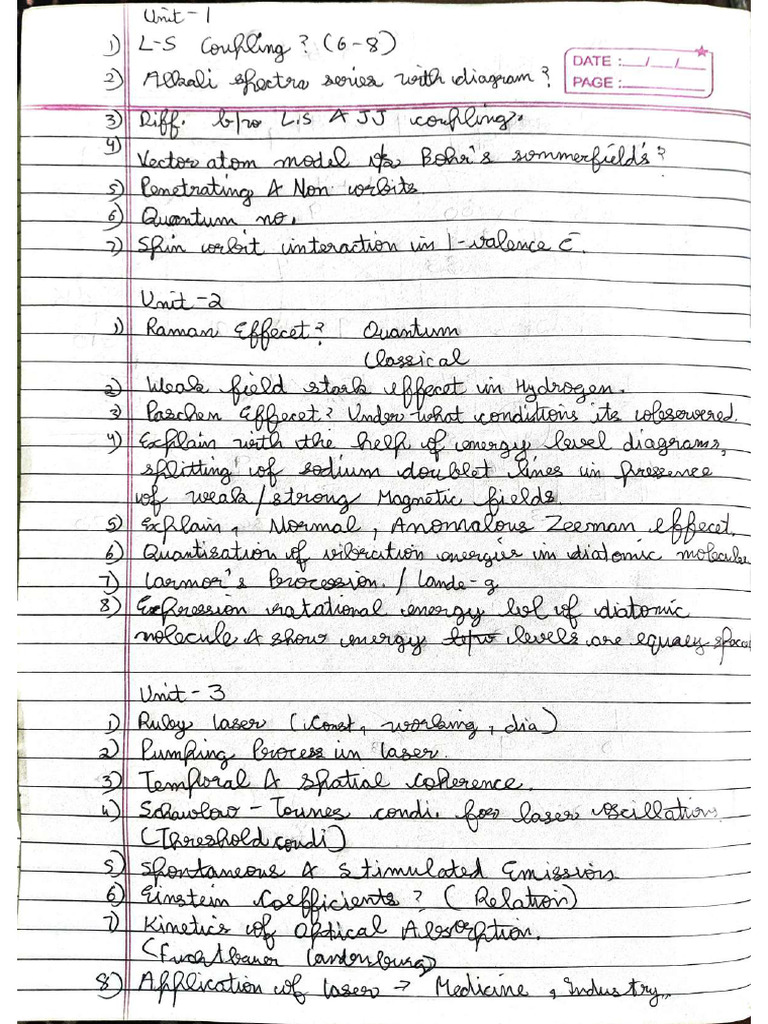 Unit-1
1) L-S Coupling? (6-8)
2) Alkali spectra series with diagram?
DATE : __/__/__
PAGE : ______
3) Diff. b/w L.S & JJ coupling.
4) Vector atom model Bohr's sommerfield's?
5) Penetrating & Non orbits.
6) Quantum no.
7) Spin orbit interaction in 1-valence e-.
Unit-2
1) Raman Effecet? Quantum
Classical
2) Weak field stark effecet in Hydrogen.
3) Paschen Effecet? Under what conditions its obeservered.
4) Explain with the help of energy level diagrams,
splitting of sodium doublet lines in presence
of weak/strong Magnetic fields.
5) Explain, Normal, Anomalous Zeeman effecet.
6) Quantisation of vibration energies in diatomic molecule
7) Larmor's Precession. / Lande-g
8) Expression rotational energy lvl of diatomic
molecule & show energy levels are equaly spaced
Unit-3
1) Ruby laser (Const, working, dia)
2) Pumping Process in laser.
3) Temporal & spatial coherence.
4) Schawlow - Townes condi. for laser oscillation
(Threshold condi)
5) Spontaneous & Stimulated Emission
6) Einstein Coefficients? (Relation)
7) Kinetics of Optical Absorption.
(Fuchtbauer Landenburg)
8) Application of laser → Medicine, Industry..